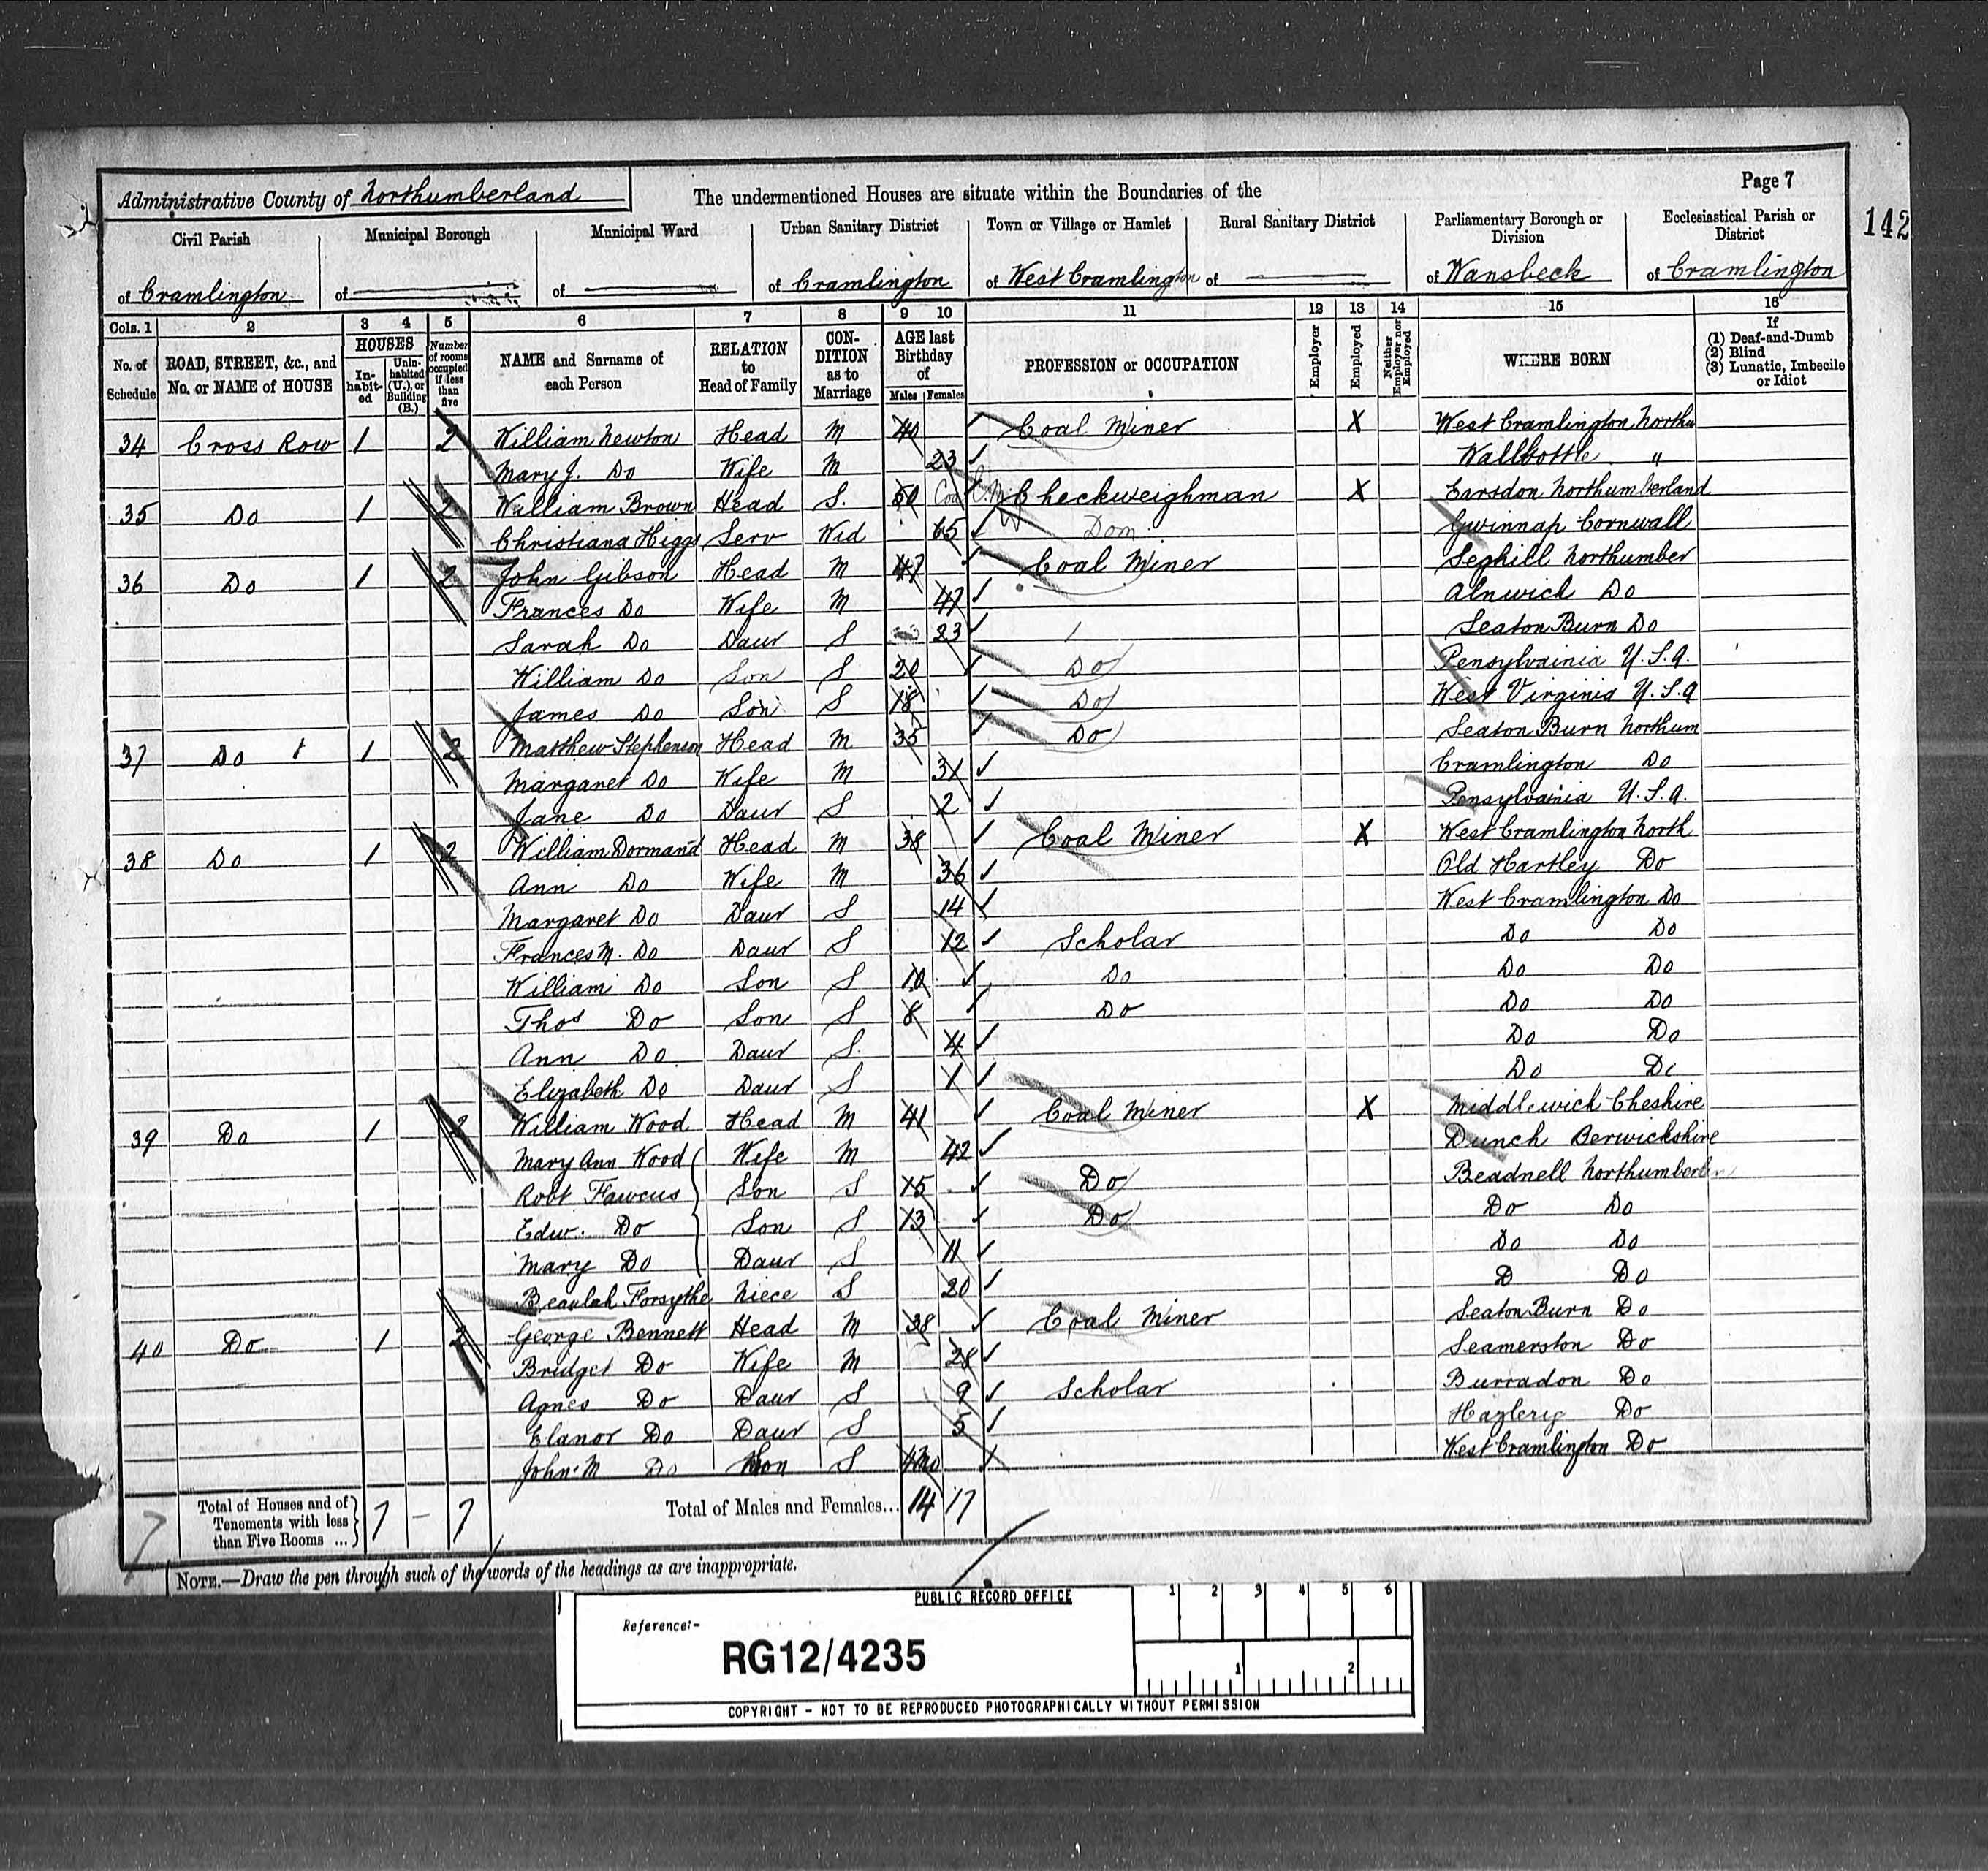 Administrative County of Northumberland The undermentioned Houses are situate within the Boundaries of the Page 7
142
Civil Parish Municipal Borough Municipal Ward Urban Sanitary District Town or Village or Hamlet Rural Sanitary District Parliamentary Borough or Division Ecclesiastical Parish or District
of Cramlington of of of Cramlington of West Cramlington of of Wansbeck of Cramlington
Cols. 1 2 3 4 5 6 7 8 9 10 11 12 13 14 15 16
No. of Schedule ROAD, STREET, &c., and No. or NAME of HOUSE HOUSES Inhabited Uninhabited (U.), or Building (B.) Number of rooms occupied if less than five NAME and Surname of each Person RELATION to Head of Family CONDITION as to Marriage AGE last Birthday of Males Females PROFESSION or OCCUPATION Employer Employed Neither Employer nor Employed WHERE BORN If (1) Deaf-and-Dumb (2) Blind (3) Lunatic, Imbecile or Idiot
34 Cross Row 1 2 William Newton Head M 40 Coal Miner X West Cramlington Northu
Mary J. Do Wife M 23 Wallbottle "
35 Do 1 2 William Brown Head S. 50 Checkweighman X Earsdon Northumberland
Christiana Higgs Serv Wid 65 Dom Gwinnap Cornwall
36 Do 1 2 John Gibson Head M 47 Coal Miner Seghill Northumber
Frances Do Wife M 47 Alnwick Do
Sarah Do Daur S 23 Seaton Burn Do
William Do Son S 20 Do Pensylvainia U.S.A.
James Do Son S 18 Do West Virginia U.S.A
37 Do 1 2 Matthew Stephenson Head M 35 Do Seaton Burn Northum
Margaret Do Wife M 31 Cramlington Do
Jane Do Daur S 2 Pensylvainia U.S.A.
38 Do 1 2 William Dormand Head M 38 Coal Miner X West Cramlington North
Ann Do Wife M 36 Old Hartley Do
Margaret Do Daur S 14 West Cramlington Do
Frances M. Do Daur S 12 Scholar Do Do
William Do Son S 10 Do Do Do
Thos Do Son S 8 Do Do Do
Ann Do Daur S. 4 Do Do
Elizabeth Do Daur S 1 Do Do
39 Do 1 2 William Wood Head M 41 Coal Miner X Middlewich Cheshire
Mary Ann Wood Wife M 42 Dunch Berwickshire
Robt Fawcus Son S 15 Do Beadnell Northumberlan
Edw. Do Son S 13 Do Do Do
Mary Do Daur S 11 Do Do
Beaulah Forsythe Niece S 20 D Do
40 Do 1 2 George Bennett Head M 38 Coal Miner Seaton Burn Do
Bridget Do Wife M 28 Seamerston Do
Agnes Do Daur S 9 Scholar Burradon Do
Elanor Do Daur S 5 Hazlerig Do
John M Do Son S West Cramlington Do
7 Total of Houses and of Tenements with less than Five Rooms ... 7 - 7 Total of Males and Females... 14 17
NOTE.—Draw the pen through such of the words of the headings as are inappropriate.
PUBLIC RECORD OFFICE
1 2 3 4 5 6
Reference:-
RG12/4235
1 2
COPYRIGHT - NOT TO BE REPRODUCED PHOTOGRAPHICALLY WITHOUT PERMISSION